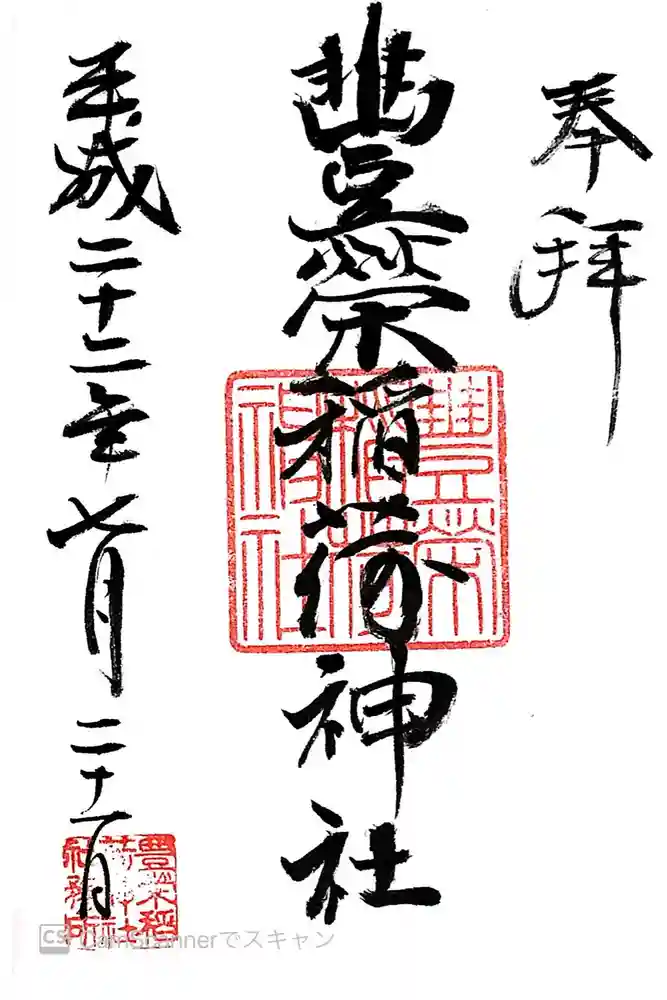 奉拝
豐榮稲荷神社
豐榮
稲荷
神社
平成二十二年七月二十一日
豊栄稲
荷神社
社務所
CS CamScannerでスキャン